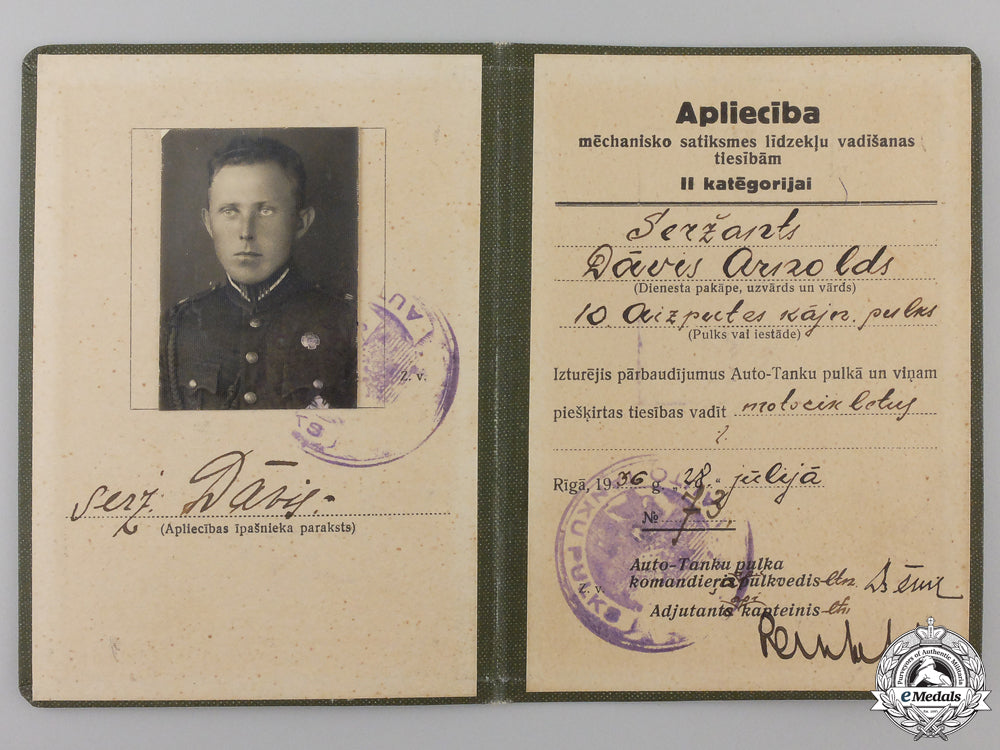 AUT
Z. v.
KS
serž. Dāvis.
(Apliecības īpašnieka paraksts)
Apliecība
mēchanisko satiksmes līdzekļu vadīšanas
tiesībām
II katēgorijai
Seržants
Dāvis Arnolds
(Dienesta pakāpe, uzvārds un vārds)
10. Aizputes kājn. pulks
(Pulks vai iestāde)
Izturējis pārbaudījumus Auto-Tanku pulkā un viņam
piešķirtas tiesības vadīt motocikletus
Rīgā, 1936 g. „28„ jūlijā
№ 73.
AUTO
NKU PULKS
Auto-Tanku pulka
komandieŗa pulkvedis-ltn.
Z. v.
Adjutants kapteinis-ltn.
Purveyors of Authentic Militaria
eMedals